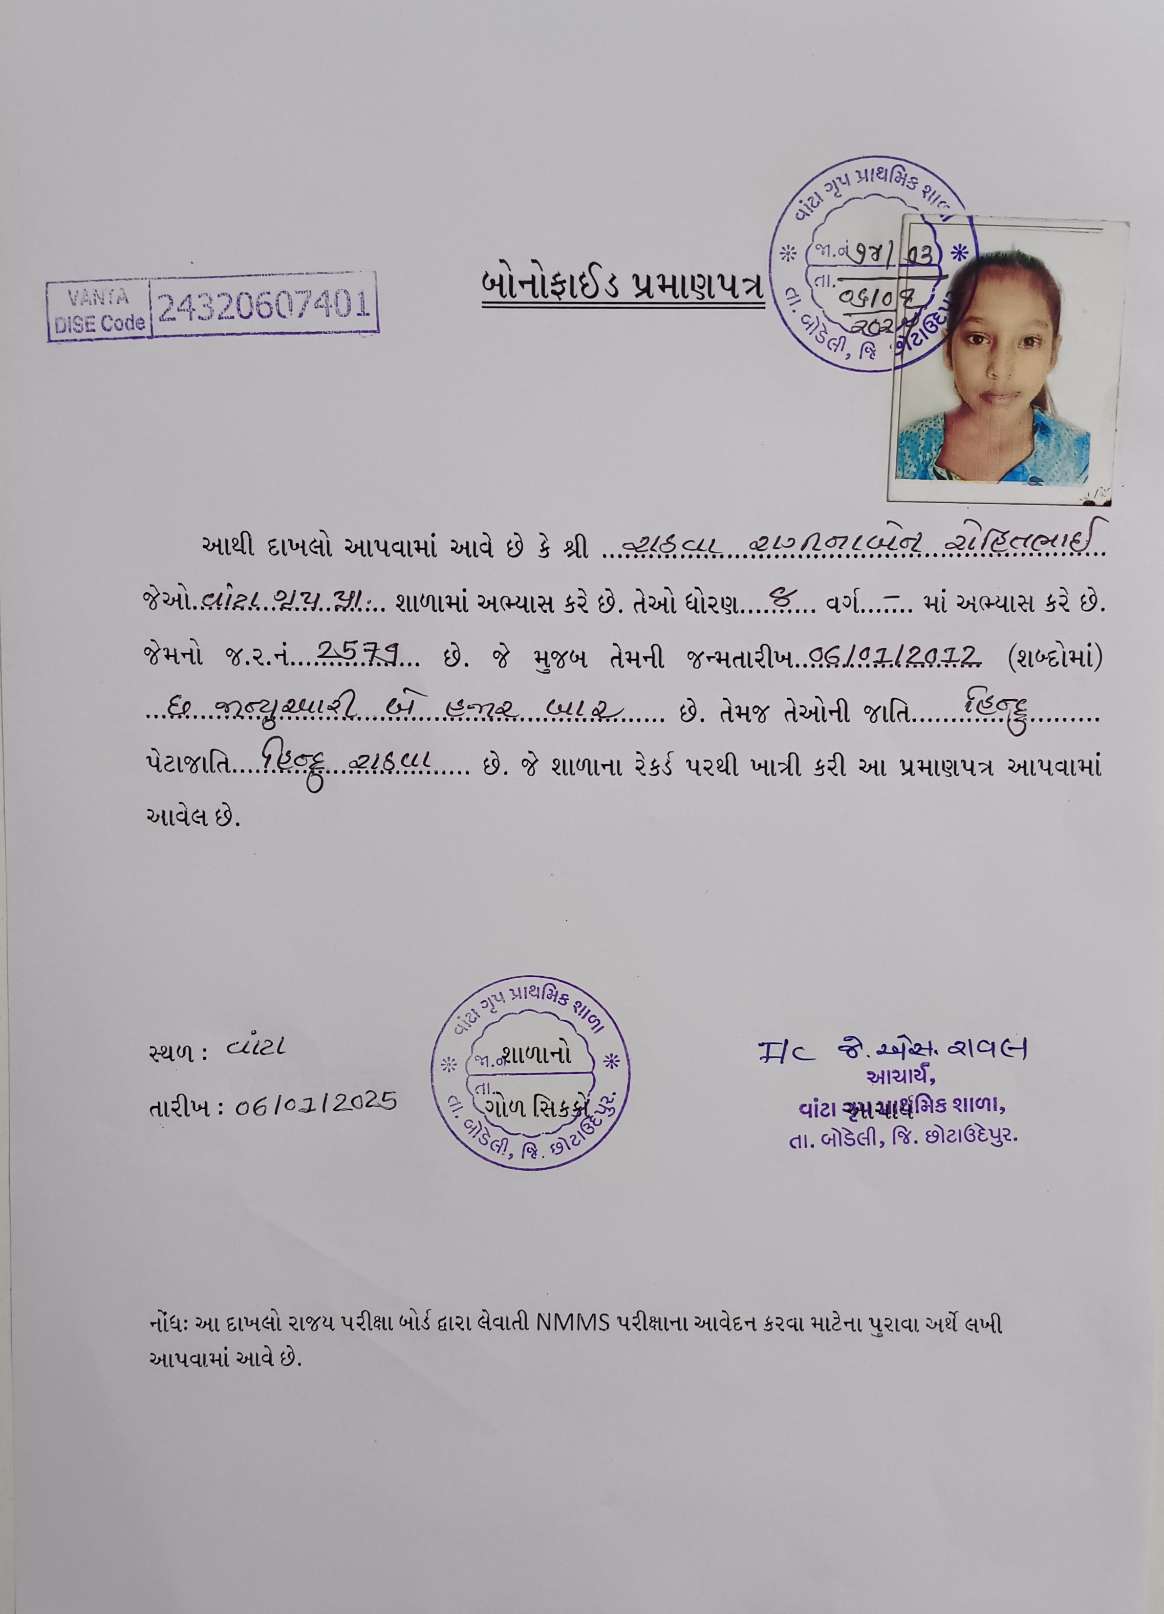 વાંટા ગૃપ પ્રાથમિક શાળા
જા.નં ૧૪/ 03
તા. ૦૬/૦૧
તા. બોડેલી, જિ. છોટાઉદેપુર
VANTA
DISE Code 24320607401
બોનોફાઈડ પ્રમાણપત્ર
આથી દાખલો આપવામાં આવે છે કે શ્રી રાઠવા રોહિતભાઈ
જેઓ વાંટા ગૃપ પ્રા. શાળામાં અભ્યાસ કરે છે. તેઓ ધોરણ ૮ વર્ગ - માં અભ્યાસ કરે છે.
જેમનો જ.ર.નં. 2579 છે. જે મુજબ તેમની જન્મતારીખ 06/01/2012 (શબ્દોમાં)
છ જાન્યુઆરી બે હજાર બાર છે. તેમજ તેઓની જાતિ હિન્દુ
પેટાજાતિ હિન્દુ રાઠવા છે. જે શાળાના રેકર્ડ પરથી ખાત્રી કરી આ પ્રમાણપત્ર આપવામાં
આવેલ છે.
વાંટા ગૃપ પ્રાથમિક શાળા
સ્થળ : વાંટા
જા.નં શાળાનો
તા. ગોળ સિક્કો
તા. બોડેલી, જિ. છોટાઉદેપુર.
તારીખ : 06/01/2025
I/C જે. એસ. રાવલ
આચાર્ય,
વાંટા ગૃપ પ્રાથમિક શાળા,
આચાર્ય
તા. બોડેલી, જિ. છોટાઉદેપુર.
નોંધઃ આ દાખલો રાજય પરીક્ષા બોર્ડ દ્વારા લેવાતી NMMS પરીક્ષાના આવેદન કરવા માટેના પુરાવા અર્થે લખી
આપવામાં આવે છે.